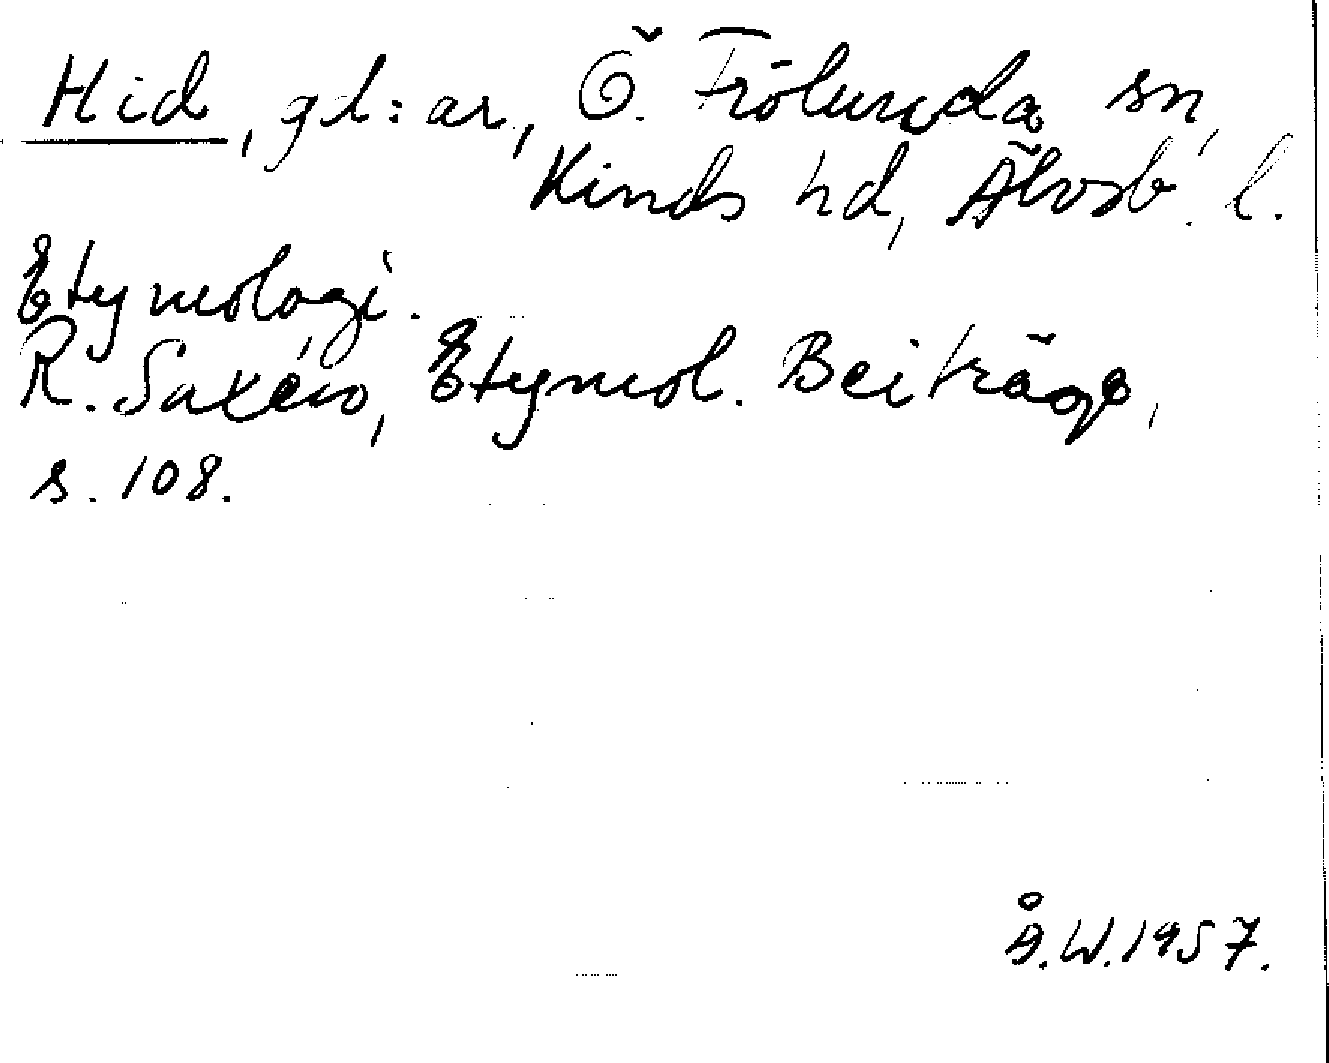 Hid, gd:ar, Ö. Frölunda sn,
Kinds hd, Älvsb. l.
Etymologi.
R. Saxén, Etymol. Beiträge,
s. 108.
Å.W.1957.